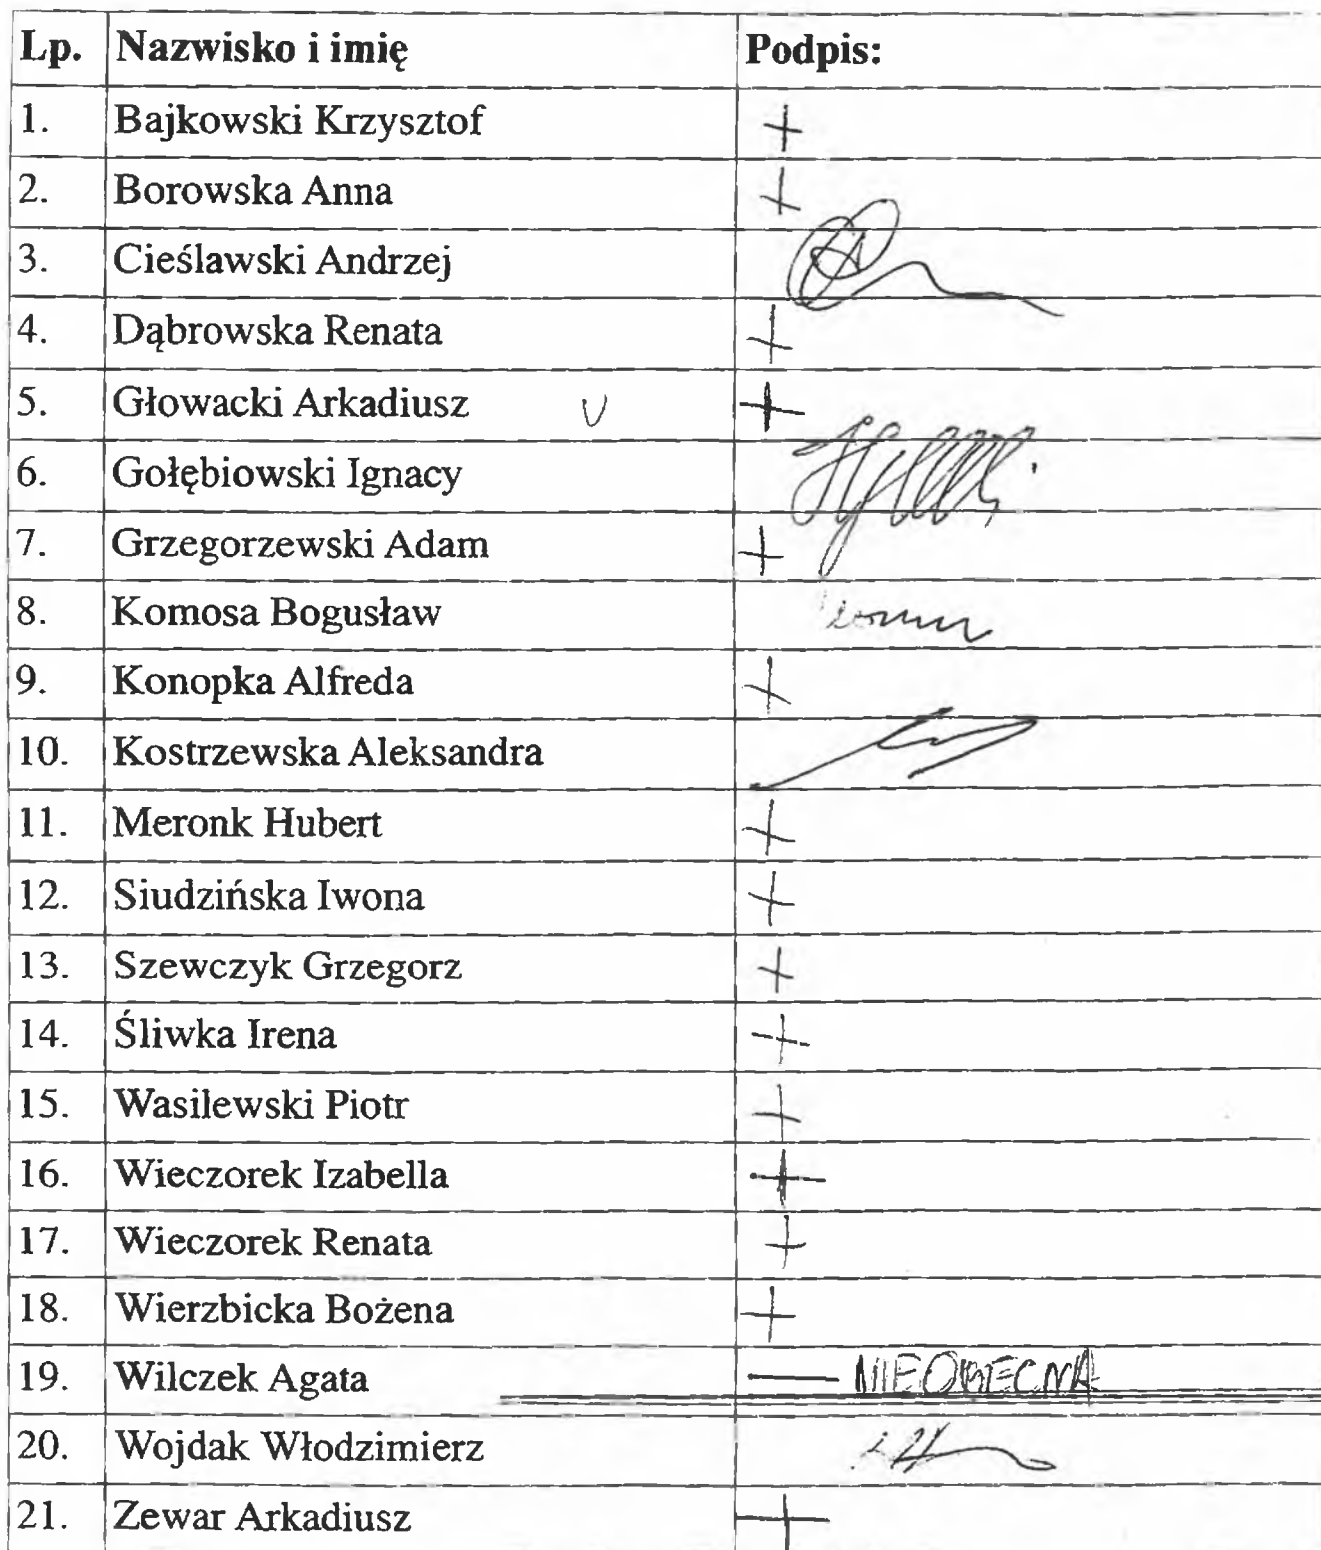 Lp. Nazwisko i imię Podpis:
1. Bajkowski Krzysztof +
2. Borowska Anna +
3. Cieślawski Andrzej
4. Dąbrowska Renata +
5. Głowacki Arkadiusz V +
6. Gołębiowski Ignacy
7. Grzegorzewski Adam +
8. Komosa Bogusław
9. Konopka Alfreda +
10. Kostrzewska Aleksandra
11. Meronk Hubert +
12. Siudzińska Iwona +
13. Szewczyk Grzegorz +
14. Śliwka Irena +
15. Wasilewski Piotr +
16. Wieczorek Izabella +
17. Wieczorek Renata +
18. Wierzbicka Bożena +
19. Wilczek Agata — NIEOBECNA
20. Wojdak Włodzimierz
21. Zewar Arkadiusz +